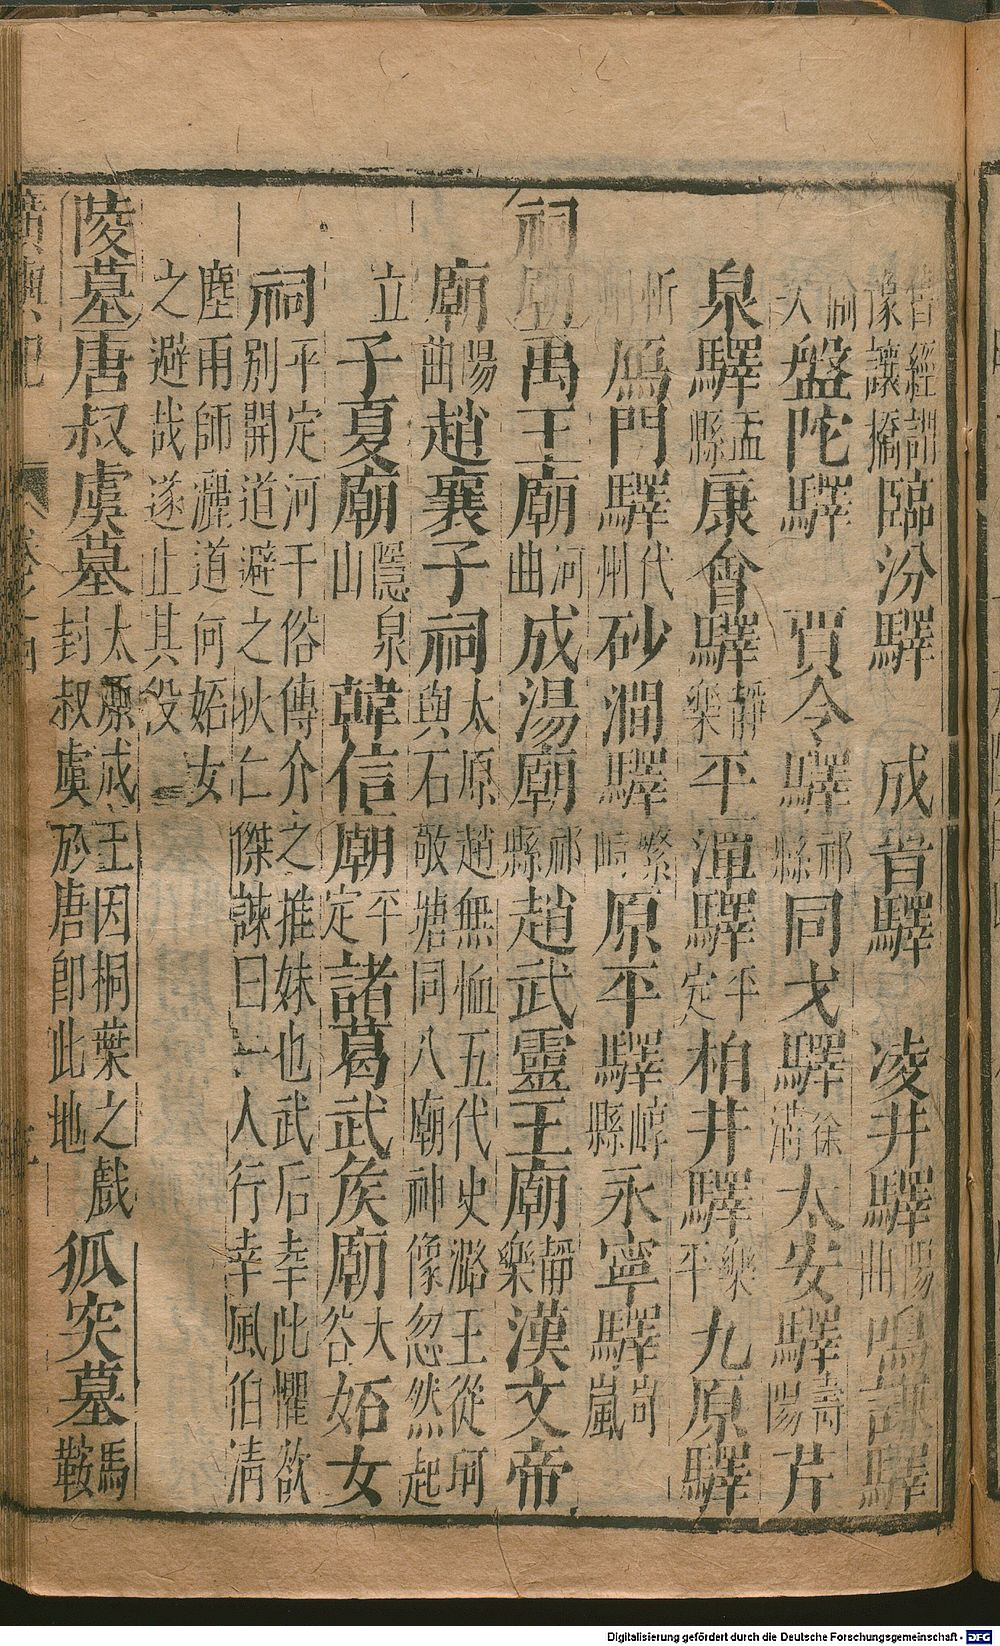 豫讓橋臨汾驛 成晉驛 凌井驛陽曲鳴謙驛
盤陀驛 賈令驛祁縣同戈驛徐溝太安驛壽陽芹
泉驛盂縣康會驛靜樂平潭驛平定柏井驛樂平九原驛
忻州鴈門驛代州砂澗驛繁峙原平驛崞縣永寧驛岢嵐
祠廟禹王廟河曲成湯廟祁縣趙武靈王廟靜樂漢文帝
廟陽曲趙襄子祠太原趙無恤五代史潞王從珂與石敬塘同入廟神像忽然起
立子夏廟隱泉山韓信廟平定諸葛武侯廟大谷妬女
祠平定河干俗傳介之推妹也武后幸此懼欲別開道避之狄仁傑諫曰一人行幸風伯清
塵雨師灑道何妬女之避哉遂止其役
陵墓唐叔虞墓太原成王因桐葉之戲封叔虞於唐卽此地狐突墓馬鞍
廣輿記 卷之四
Digitalisierung gefördert durch die Deutsche Forschungsgemeinschaft - DFG